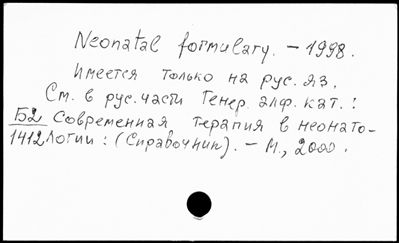 Neonatal formulary. – 1998.
Имеется только на рус. яз.
См. в рус. части Генер. алф. кат. :
Б2 Современная терапия в неонато-
1412 логии : (Справочник). – М., 2000.